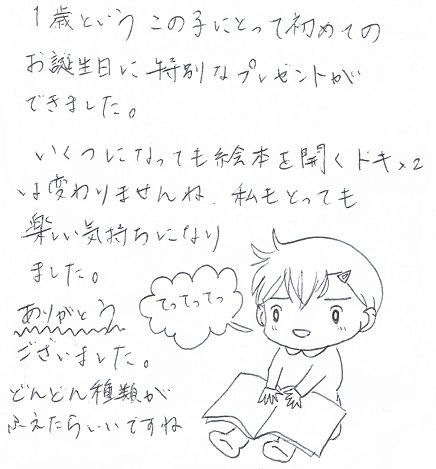 1歳という この子にとって初めての
お誕生日に 特別なプレゼントが
できました。
いくつになっても絵本を開くドキ×2
は変わりませんね。私もとっても
楽しい気持ちになり
ました。
ありがとう
ございました。
どんどん種類が
ふえたらいいですね
てってってっ